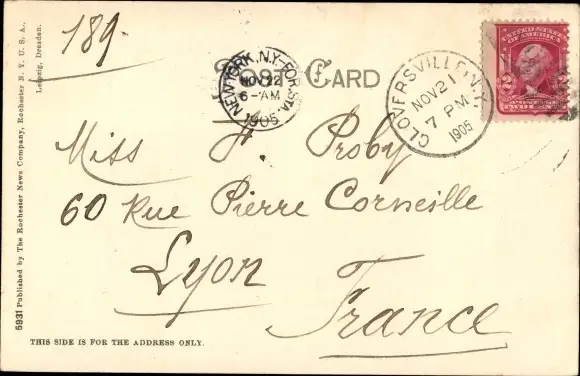 189-
POST CARD
NEW YORK, N.Y. FOR. STA.
NOV 22
6-AM
1905
GLOVERSVILLE, N.Y.
NOV 21
7 PM
1905
UNITED STATES OF AMERICA
2
TWO CENTS
Miss H. Proby
60 Rue Pierre Corneille
Lyon
France
THIS SIDE IS FOR THE ADDRESS ONLY.
5931 Published by The Rochester News Company, Rochester N. Y. U. S. A.,
Leipzig, Dresden.